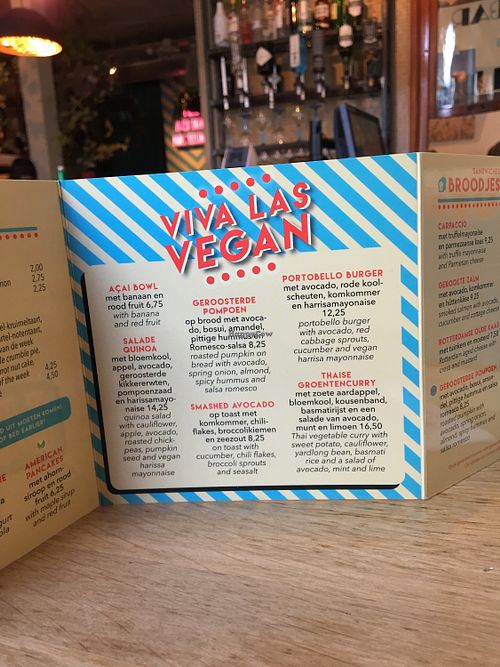 VIVA LAS
VEGAN
AÇAI BOWL
met banaan en
rood fruit 6,75
with banana
and red fruit
SALADE
QUINOA
met bloemkool,
appel, avocado,
geroosterde
kikkererwten,
pompoenzaad
en harissa mayo-
naise 14,25
quinoa salad
with cauliflower,
apple, avocado,
roasted chick-
peas, pumpkin
seed and vegan
harissa
mayonnaise
GEROOSTERDE
POMPOEN
op brood met avoca-
do, bosui, amandel,
pittige hummus en
Romesco-salsa 8,25
roasted pumpkin on
bread with avocado,
spring onion, almond,
spicy hummus and
salsa romesco
SMASHED AVOCADO
op toast met
komkommer, chili-
flakes, broccolikiemen
en zeezout 8,25
on toast with
cucumber, chili flakes,
broccoli sprouts
and seasalt
PORTOBELLO BURGER
met avocado, rode kool-
scheuten, komkommer
en harrisamayonaise
12,25
portobello burger
with avocado, red
cabbage sprouts,
cucumber and vegan
harrisa mayonnaise
THAISE
GROENTENCURRY
met zoete aardappel,
bloemkool, kousenband,
basmatirijst en een
salade van avocado,
munt en limoen 16,50
Thai vegetable curry with
sweet potato, cauliflower,
yardlong bean, basmati
rice and a salad of
avocado, mint and lime
HappyCow
2,00
2,75
2,25
4,25
4,50
AMERICAN
PANCAKES
met ahorn-
siroop en rood
fruit 6,25
with maple sirup
and red fruit
BROODJES
CARPACCIO
met truffelmayonaise
en parmezaanse kaas 9,25
with truffle mayonnaise
and Parmesan cheese
GEROOKTE ZALM
met avocado, komkommer
en hüttenkäse 9,25
smoked salmon with avocado,
cucumber and cottage cheese
ROTTERDAMSCHE OUDE KAAS
Rotterdam aged cheese with
cress and mustard
GEROOSTERDE POMPOEN
met avocado, bosui, aman-
del, pittige hummus en
salsa romesco 8,25
roasted pumpkin with
avocado, spring onion,
almond, spicy hummus and
salsa romesco